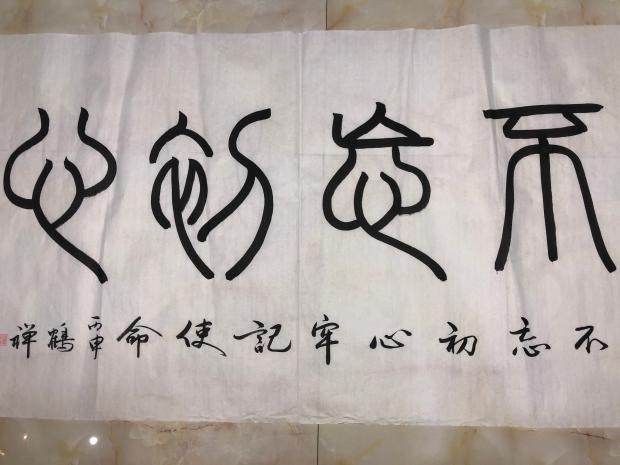 不忘初心
不忘初心牢記使命
丙申鶴禅